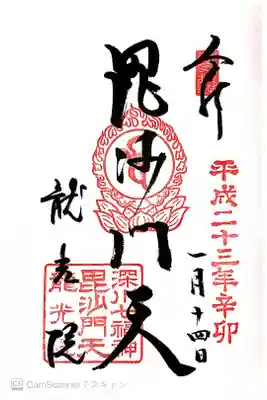 奉拝
平成二十三年辛卯
一月十四日
毘沙門天
龍光院
深川七福神
毘沙門天
龍光院
CamScannerでスキャン